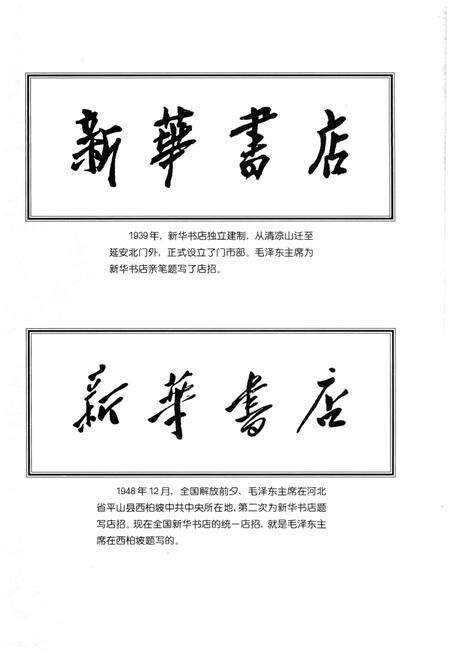 新華書店
1939年，新华书店独立建制，从清凉山迁至
延安北门外，正式设立了门市部。毛泽东主席为
新华书店亲笔题写了店招。
新華書店
1948年12月，全国解放前夕、毛泽东主席在河北
省平山县西柏坡中共中央所在地，第二次为新华书店题
写店招。现在全国新华书店的统一店招，就是毛泽东主
席在西柏坡题写的。